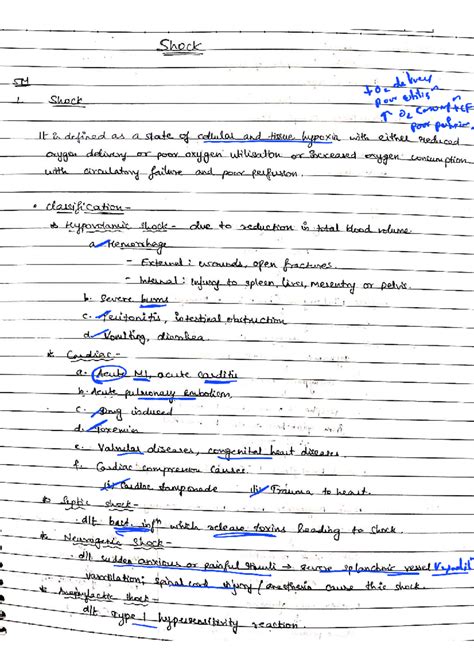 Shock
5M
↓ O2 delivery
poor utilisn
↑ O2 consm + CF
poor perfusion
1. Shock
It is defined as a state of cellular and tissue hypoxia with either reduced
oxygen delivery or poor oxygen utilisation or increased oxygen consumption
with circulatory failure and poor perfusion.
• Classification -
* Hypovolamic shock - due to reduction in total blood volume.
a. Hemorrhage
- External: wounds, open fractures.
- Internal: injury to spleen, liver, mesentry or pelvis.
b. Severe burns
c. Peritonitis, intestinal obstruction
d. Vomiting, diarrhea.
* Cardiac -
a. Acute MI, acute carditis
b. Acute pulmonary Embolism,
c. Drug induced
d. Toxemia
e. Valvular diseases, congenital heart diseases.
f. Cardiac compression causes.
(i) Cardiac tamponade (ii) Trauma to heart.
* Septic shock -
d/t bact. infn which release toxins leading to shock.
* Neurogenic Shock -
d/t sudden anxious or painful stimuli → severe splanchnic vessel Vasodiltn
spinal cord injury / anesthesia cause this shock.
* Anaphylactic shock -
d/t Type 1 hypersensitivity reaction.